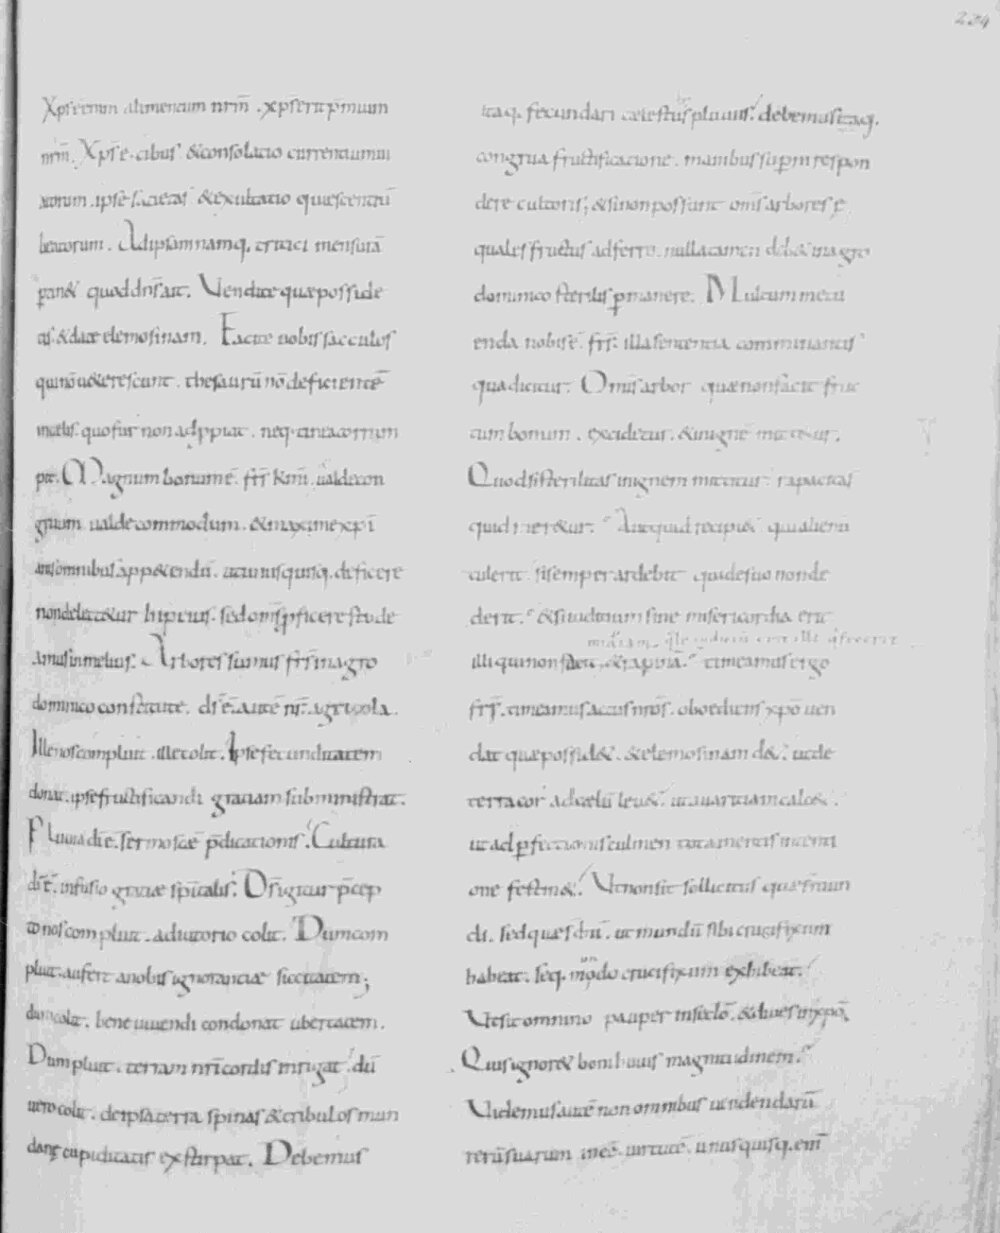 224
Xps etenim alimentum nrm̄. xp̄s erit p̄mium
nrm̄. Xps ē cibus & consolatio currentium
iustorum. ipse sacietas & exultatio quiescentiū
beatorum. Ad ipsam namq. tritici mensurā
ꝑtin& quod dn̄s ait. Vendite quæ posside
tis. & date elemosinam. Facite uobis sacculos
qui nō ueterescunt. thesaurū nō deficientē
in cælis. quo fur non adppiat. neq. tinea corrum
pit. Magnum bonum ē. frs̄ kmi. ualde con
gruum ualde commodum. & maxime xp̄i
anis omnibus app&endū. ut unusquisq. deficere
non delect&ur in peius. sed om̄s ꝓficere stude
amus in melius. Arbores sumus frs̄ in agro
dominico constitute. ds̄ ē. autē nr̄. agricola.
Ille nos compluit. ille colit. Ipse fecunditatem
donat. ipse fructificandi gratiam subministrat.
Pluuia di ē. sermo scæ p̄dicationis. Cultura
di ē. infusio gratiæ sp̄italis. Ds̄ igitur p̄cep
to nos compluit. adiutorio colit. Dum com
pluit. aufert a nobis ignorantiæ siccitatem;
dum colit. bene uiuendi condonat ubertatem.
Dum pluit. terram nri cordis inrigat. dū
uero colit. de ipsa terra spinas & tribulos mun
danę cupiditatis exstirpat. Debemus
itaq. fecundari cælestibus pluuiis. debemus itaq.
congrua fructificatione. manibus supni respon
dere cultoris; & si non possunt om̄s arbores
quales fructus adferre. nulla tamen deb& in agro
dominico sterilis ꝑmanere. Multum metu
enda nobis ē. frs̄. illa sententia comminantis
qua dicitur. Omis arbor quæ non facit fruc
tum bonum. excidetur. & in ignē mittetur.
Quod si sterilitas in ignem mittitur. rapacitas
quid mer&ur. Aut quid recipi& qui alienū
tulerit. si semper ardebit qui de suo non de
derit. & si iudicium sine misericordia erit
illi qui non fecit
timeamus ergo
frs̄. timeamus
oboediens xpō uen
dat quæ possid&. & elemosinam d&. ut de
terra cor ad cælū leu&. ut auaritiam calc&.
ut ad ꝑfectionis culmen tota mentis intenti
one festin&. Ut non sit sollicitus
di. sed
ut mundū sibi crucifixum
habeat. seq. mundo crucifixum exhibeat.
Ut sit omnino pauper in sclō. & diues in xpō.
Quis ignor& boni huius magnitudinem.
Videmus autē non omnibus uendendarū
rerū suarum inee. uirtutē. unusquisq. enī